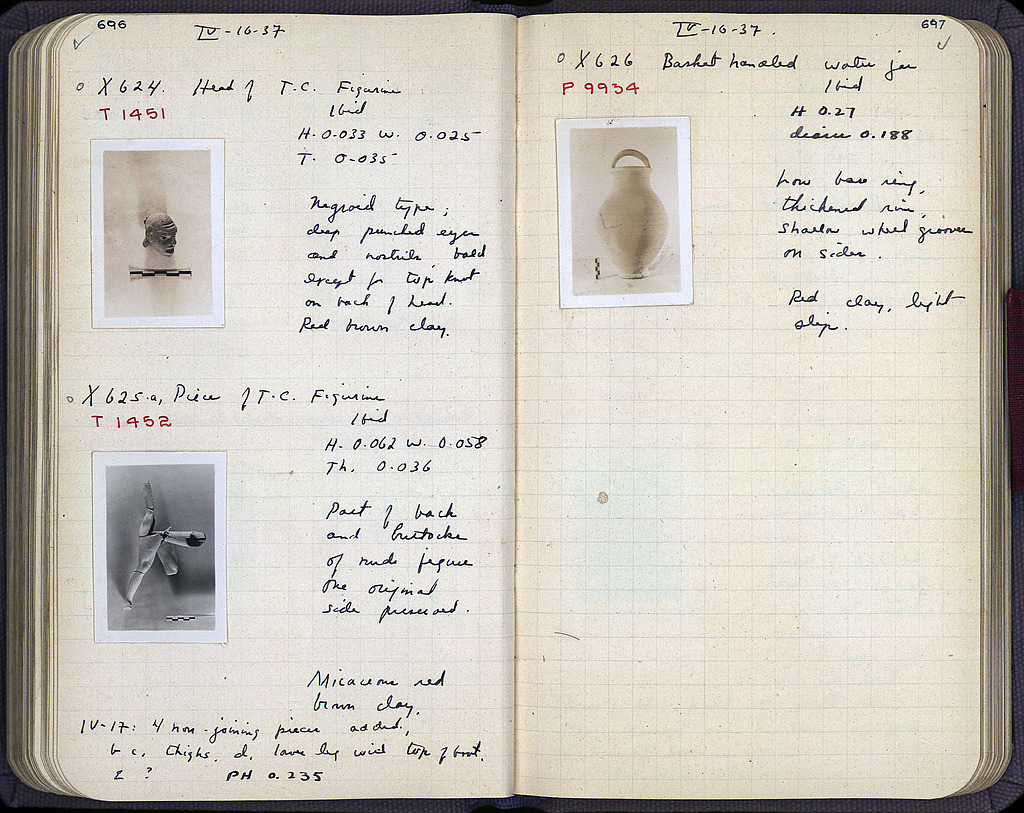 696
IV-16-37
X 624. Head of T.C. Figurine
T 1451
Ibid
H. 0.033 W. 0.025
T. 0.035
Negroid type;
deep punched eyes
and nostrils, bald
except for top knot
on back of head.
Red brown clay.
X 625.a, Piece of T.C. Figurine
T 1452
Ibid
H. 0.062 W. 0.058
Th. 0.036
Part of back
and buttocks
of nude figure
one original
side preserved.
Micaceous red
brown clay.
IV-17: 4 non-joining pieces added,
b c, thighs. d, lower leg with top of boot.
?
PH 0.235
697
IV-16-37.
X 626 Basket handled water jar
P 9934
Ibid
H 0.27
diam 0.188
Low base ring,
thickened rim,
shallow wheel grooves
on sides.
Red clay, light
slip.